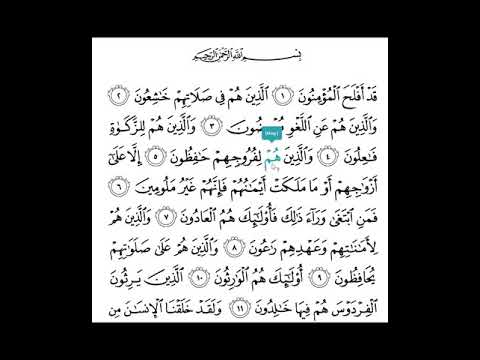 بِسْمِ اللَّهِ الرَّحْمَٰنِ الرَّحِيمِ
قَدْ أَفْلَحَ الْمُؤْمِنُونَ ١ الَّذِينَ هُمْ فِي صَلَاتِهِمْ خَاشِعُونَ ٢
وَالَّذِينَ هُمْ عَنِ اللَّغْوِ مُعْرِضُونَ ٣ وَالَّذِينَ هُمْ لِلزَّكَوٰةِ
فَاعِلُونَ ٤ وَالَّذِينَ هُمْ لِفُرُوجِهِمْ حَافِظُونَ ٥ إِلَّا عَلَىٰ
أَزْوَاجِهِمْ أَوْ مَا مَلَكَتْ أَيْمَانُهُمْ فَإِنَّهُمْ غَيْرُ مَلُومِينَ ٦
فَمَنِ ابْتَغَىٰ وَرَاءَ ذَٰلِكَ فَأُولَٰئِكَ هُمُ الْعَادُونَ ٧ وَالَّذِينَ هُمْ
لِأَمَانَاتِهِمْ وَعَهْدِهِمْ رَاعُونَ ٨ وَالَّذِينَ هُمْ عَلَىٰ صَلَوَاتِهِمْ
يُحَافِظُونَ ٩ أُولَٰئِكَ هُمُ الْوَارِثُونَ ١٠ الَّذِينَ يَرِثُونَ
الْفِرْدَوْسَ هُمْ فِيهَا خَالِدُونَ ١١ وَلَقَدْ خَلَقْنَا الْإِنسَانَ مِن